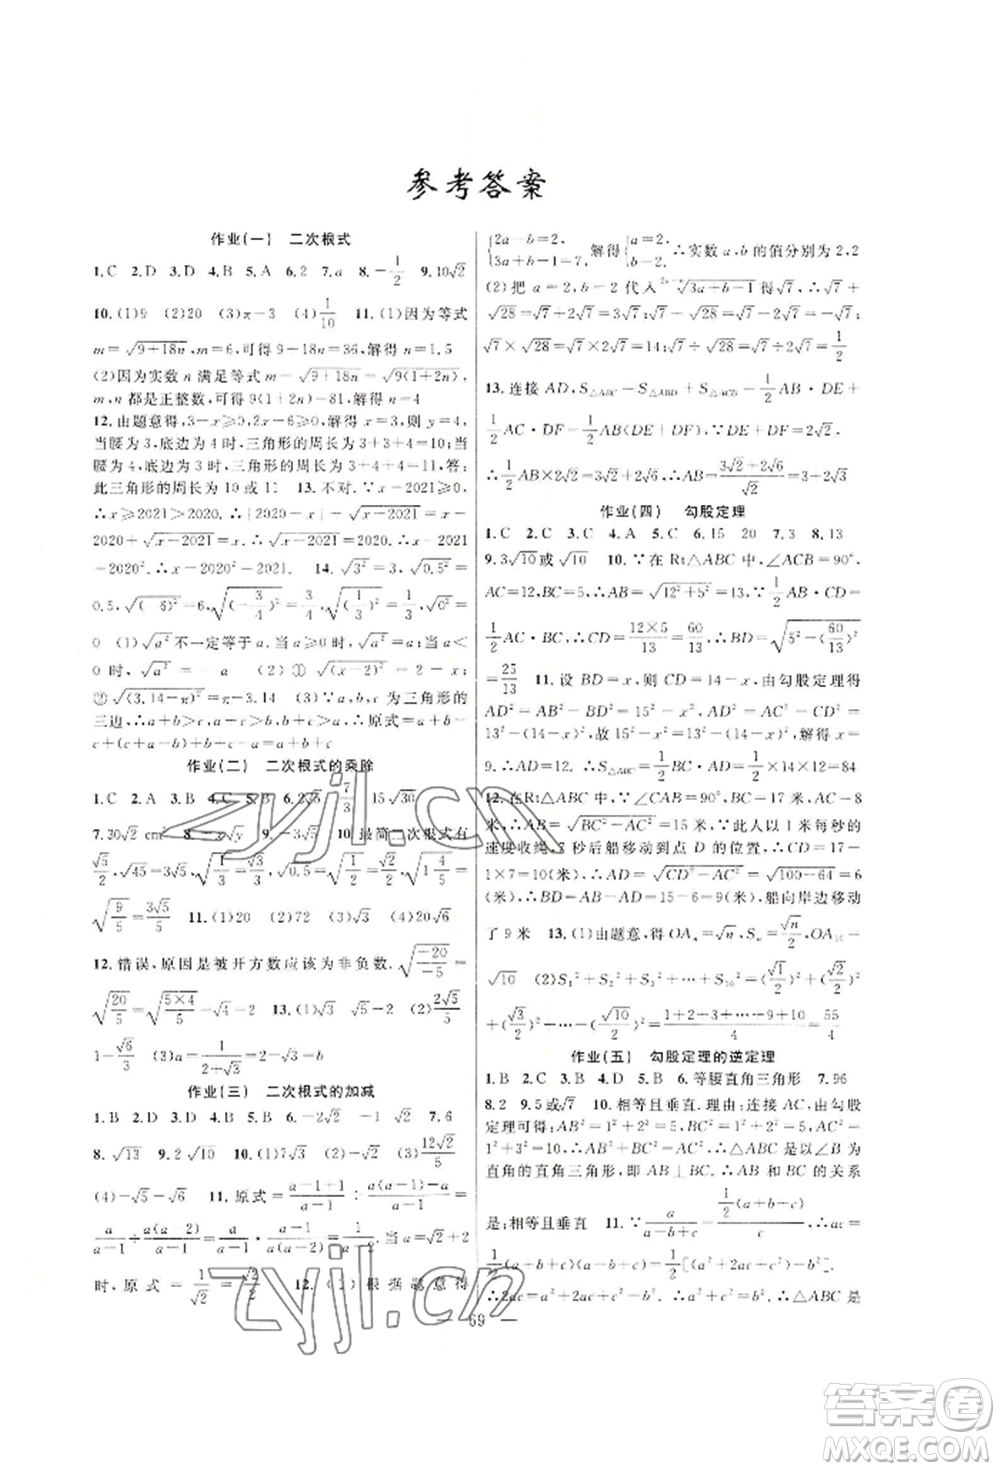 参考答案
作业(一) 二次根式
1.C 2.D 3.D 4.B 5.A 6.2 7.a 8.-1/2 9.10√2
10.(1)9 (2)20 (3)π-3 (4)1/10 11.(1)因为等式
m=√(9+18n),m=6,可得 9+18n=36,解得 n=1.5
(2)因为实数 n 满足等式 m=√(9+18n)=√(9(1+2n)),
m,n 都是正整数,可得 9(1+2n)=81,解得 n=4
12.由题意得,3-x≥0,2x-6≥0,解得 x=3,则 y=4,
当腰为 3,底边为 4 时,三角形的周长为 3+3+4=10;当
腰为 4,底边为 3 时,三角形的周长为 3+4+4=11,答:
此三角形的周长为 10 或 11 13.不对.∵x-2021≥0,
∴x≥2021>2020.∴|2020-x|+√(x-2021)=x-
2020+√(x-2021)=x.∴√(x-2021)=2020.∴x-2021
=2020².∴x-2020²=2021. 14.√(3²)=3,√(0.5²)=
0.5,√((-6)²)=6,√((-3/4)²)=3/4,√((1/3)²)=1/3,√(0²)=
0 (1)√(a²)不一定等于a,当 a≥0 时,√(a²)=a;当 a<
0 时,√(a²)=-a (2)①√((x-2)²)=2-x;
②√((3.14-π)²)=π-3.14 (3)∵a,b,c 为三角形的
三边,∴a+b>c,b+c>a,c+a>b,∴原式=a+b-
c+(c+a-b)+b+c-a=a+b+c
作业(二) 二次根式的乘除
1.C 2.A 3.D 4.C 5.B 6.2√5 7/3 15√30
7.30√2 cm 8.-x√y 9.-3√5 10.最简二次根式有
√3/2,√45=3√5,√(1/8)=√2/4,2√0.5=√2,√(1 4/5)=
√(9/5)=3√5/5 11.(1)20 (2)72 (3)√3/2 (4)20√6
12.错误,原因是被开方数应该为非负数.√(-20/-5)=
√(20/5)=√(5×4/5)=√4=2 13.(1)√3 √5-2 (2)2√5/5
1-√6/3 (3)a=1/(2+√3)=2-√3=b
作业(三) 二次根式的加减
1.C 2.A 3.C 4.B 5.B 6.-2√2 -1-√2 7.6
8.√13 9.2√2 10.(1)7√3 (2)√6 (3)12√2/5
(4)-√5-√6 11.原式=(a-1+1)/(a-1)÷(a(a-1)-a)/(a-1)=
a/(a-1)÷a(a-2)/(a-1)=a/(a-1)·(a-1)/a(a-2)=1/(a-2).当 a=√2+2
时,原式=1/√2=√2/2 12.(1)根据题意得
{2a-b=2, 3a+b-1=7, 解得{a=2, b=2, ∴实数 a,b 的值分别为 2,2
÷√28=√7+√28+√7-√28+√7×√28+√7÷
√28=√7+2√7+√7-2√7+√7×2√7+1/2=2√7+14 1/2
13.连接 AD,S△ABC=S△ABD+S△ACD=1/2AB·DE+
1/2AC·DF=1/2AB(DE+DF),∵DE+DF=2√2,
∴1/2AB×2√2=3√2+2√6.∴AB=(3√2+2√6)/√2=3+2√3
作业(四) 勾股定理
1.C 2.C 3.C 4.A 5.C 6.15 20 7.3 8.13
9.3√10或√10 10.∵在 Rt△ABC 中,∠ACB=90°,
AC=12,BC=5,∴AB=√(12²+5²)=13.∵1/2AB·CD=
1/2AC·BC,∴CD=12×5/13=60/13.∴BD=√(5²-(60/13)²)=
25/13 11.设 BD=x,则 CD=14-x,由勾股定理得
AD²=AB²-BD²=15²-x²,AD²=AC²-CD²=
13²-(14-x)²,故 15²-x²=13²-(14-x)²,解得 x=
9.∴AD=12.∴S△ABC=1/2BC·AD=1/2×14×12=84
12.在Rt△ABC 中,∠CAB=90°,BC=17 米,AC=8
米,∴AB=√(BC²-AC²)=15(米),∵此人以 1 米每秒的
速度收绳,7 秒后船移动到点 D 的位置,∴CD=17-
1×7=10(米),∴AD=√(CD²-AC²)=√(100-64)=6
(米),∴BD=AB-AD=15-6=9(米),船向岸边移动
了 9 米 13.(1)由题意,得 OAₙ=√n,Sₙ=√n/2,OA₁₀=
√10 (2)S₁²+S₂²+S₃²+…+S₁₀²=(1/2)²+(√2/2)²+
(√3/2)²+…+(√10/2)²=(1+2+3+…+9+10)/4=55/4
作业(五) 勾股定理的逆定理
1.B 2.C 3.D 4.B 5.D 6.等腰直角三角形 7.96
8.2 9.5 或√7 10.相等且垂直.理由:连接 AC,由勾股
定理可得:AB²=1²+2²=5,BC²=1²+2²=5,AC²=
1²+3²=10,∴AB²+BC²=AC²,△ABC 是以∠B 为
直角的直角三角形,即 AB⊥BC,∴AB 和 BC 的关系
是:相等且垂直 11.∵a/(a-b+c)=1/2(a+b+c)/c,∴ac=
1/2(a+b+c)(a-b+c)=1/2[(a²+2ac+c²)-b²],
∴2ac=a²+2ac+c²-b²,∴a²+c²=b²,∴△ABC 是
69
zyjl.cn
zyjl.cn
答案圈
MXQE.COM